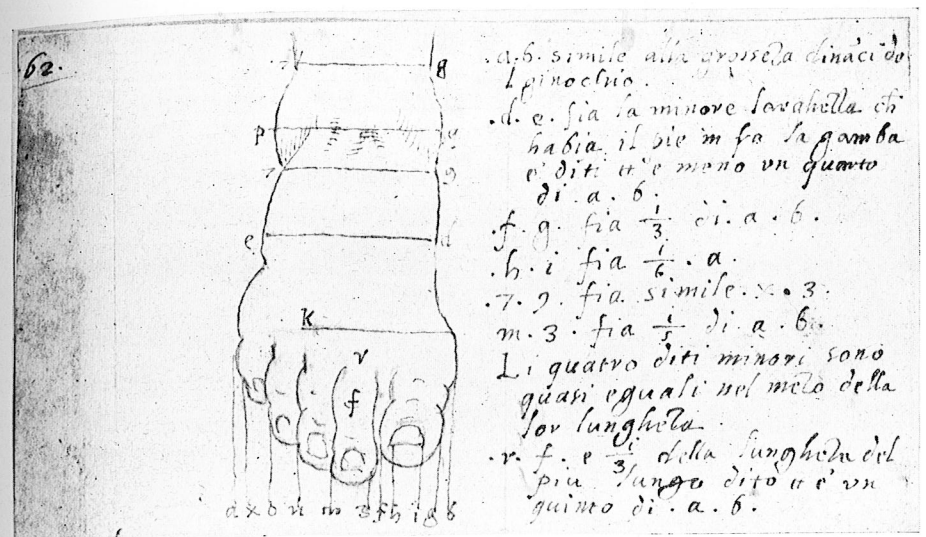 62.
8
p
7 9
e d
K
r
f
a x o n m 3 f h i g b
.a.b. simile alla grosseza dinanci de
l ginochio.
.d. e. sia la minore larghezza ch
habia il pie in fra la gamba
e diti et e meno un quarto
di . a . b .
.f. g. fia 1/3 di . a . b .
.h. i fia 1/6 . a .
.7. 9. fia simile . x . 3
m . 3 . fia 1/5 di . a . b .
Li quatro diti minori sono
quasi eguali nel mezo della
lor lungheza
.r. f. e 1/3 della lungheza del
piu lungo dito et e un
quinto di . a . b .